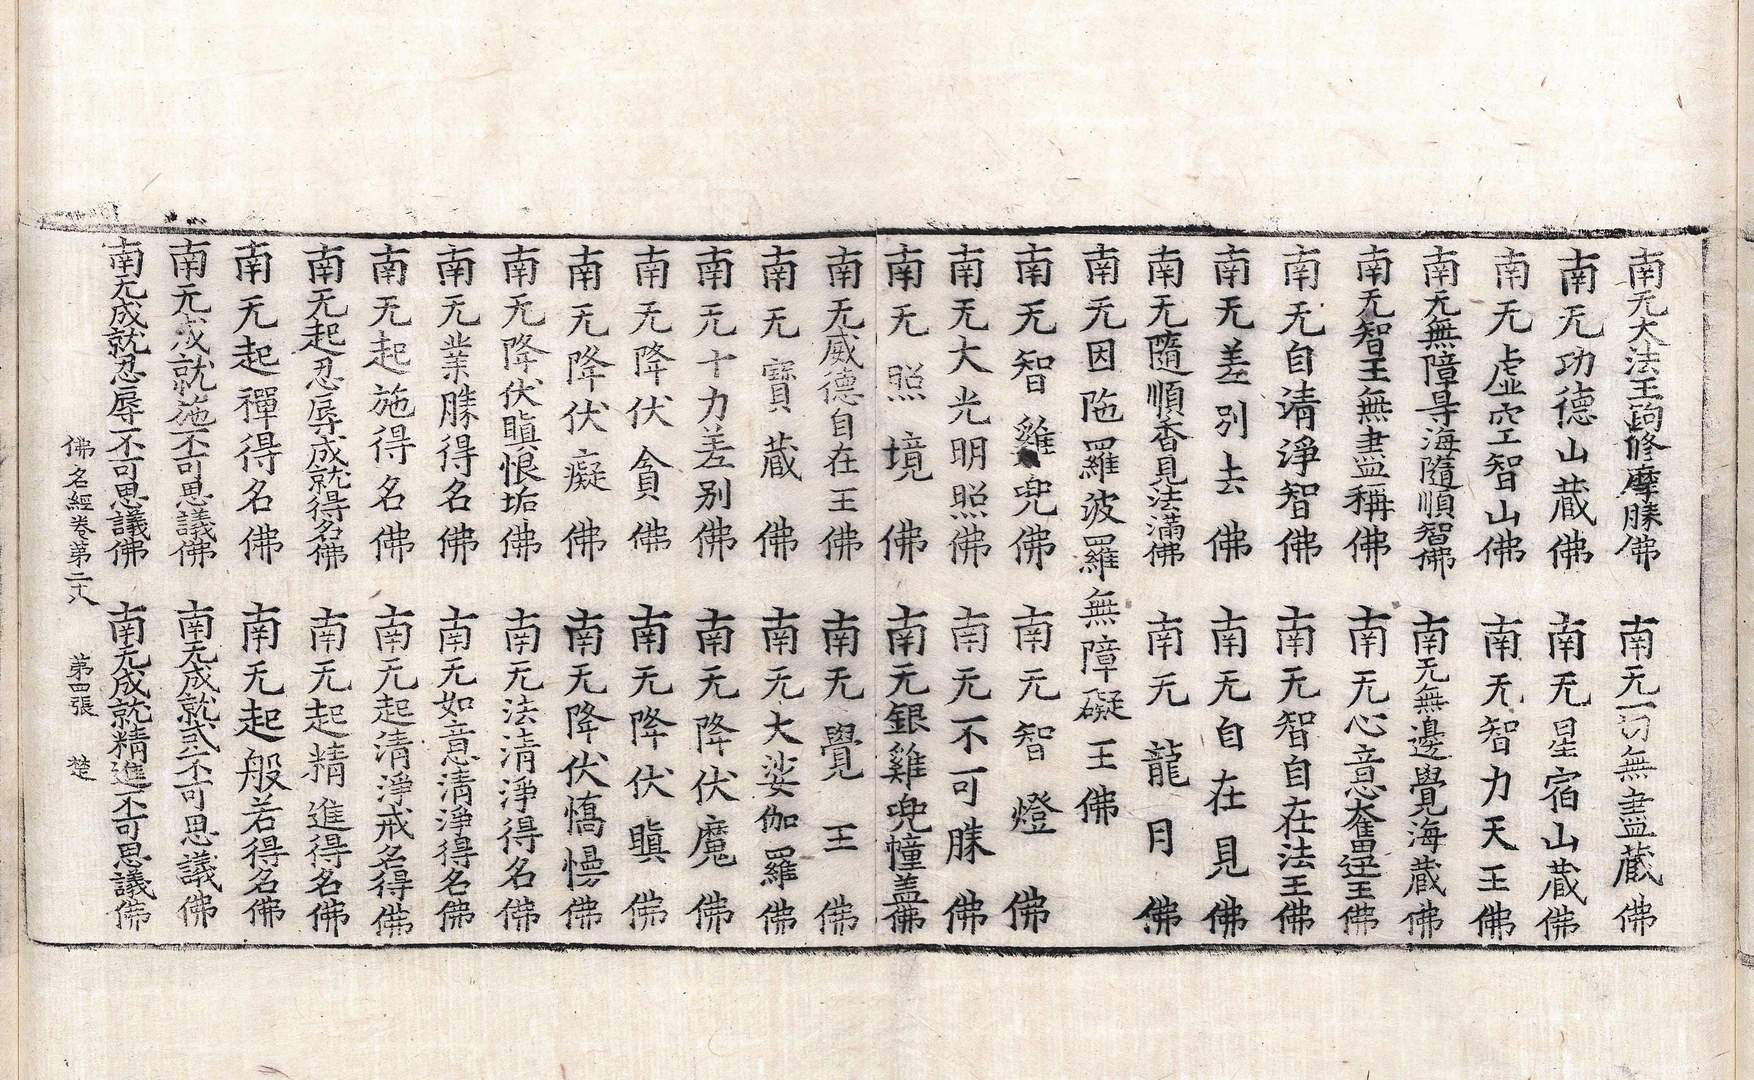 南无大法王拘修摩勝佛　南无一切無盡藏佛
南无功德山藏佛　南无星宿山藏佛
南无虛空智山佛　南无智力天王佛
南无無障㝵海隨順智佛　南无無邊覺海藏佛
南无智王無盡稱佛　南无心意奮迅王佛
南无自清淨智佛　南无智自在法王佛
南无差別去佛　南无自在見佛
南无隨順香見法滿佛　南无龍月佛
南无因陁羅波羅無障礙王佛
南无智雞兜佛　南无智燈佛
南无大光明照佛　南无不可勝佛
南无照境佛　南无銀雞兜幢盖佛
南无威德自在王佛　南无覺王佛
南无寶藏佛　南无大娑伽羅佛
南无十力差别佛　南无降伏魔佛
南无降伏貪佛　南无降伏瞋佛
南无降伏癡佛　南无降伏憍慢佛
南无降伏瞋恨垢佛　南无法清淨得名佛
南无業勝得名佛　南无如意清淨得名佛
南无起施得名佛　南无起清淨戒名得佛
南无起忍辱成就得名佛　南无起精進得名佛
南无起禪得名佛　南无起般若得名佛
南无成就施不可思議佛　南无成就戒不可思議佛
南无成就忍辱不可思議佛　南无成就精進不可思議佛
佛名經卷第二十八　第四張　楚